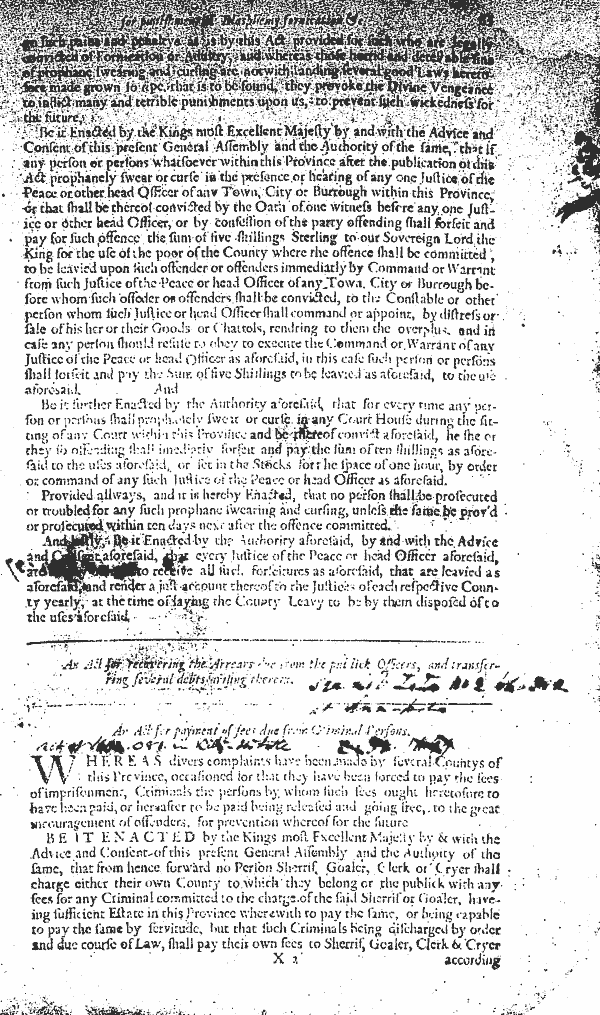 for punishment of Blasphemy fornication &c. 83
on such pains and penaltys as is by this Act provided for such who are legally
convicted of Fornication or Adultry, and whereas those horrid and detestable sins
of prophane swearing and cursing are notwithstanding several good Laws hereto-
fore made grown so ripe, that is to be found, they provoke the Divine Vengeance
to inflict many and terrible punishments upon us, to prevent such wickedness for
the future,
Be it Enacted by the Kings most Excellent Majesty by and with the Advice and
Consent of this present General Assembly and the Authority of the same, that if
any person or persons whatsoever within this Province after the publication of this
Act prophanely swear or curse in the presence or hearing of any one Justice of the
Peace or other head Officer of any Town, City or Burrough within this Province,
or that shall be thereof convicted by the Oath of one witness before any one Just-
ice or other head Officer, or by confession of the party offending shall forfeit and
pay for such offence the sum of five shillings Sterling to our Sovereign Lord the
King for the use of the poor of the County where the offence shall be committed,
to be leavied upon such offender or offenders immediatly by Command or Warrant
from such Justice of the Peace or head Officer of any Town, City or Burough be-
fore whom such offeder or offenders shall be convicted, to the Constable or other
person whom such Justice or head Officer shall command or appoint, by distress or
sale of his her or their Goods or Chattols, rendring to them the overplus, and in
case any person should refuse to obey to execute the Command or Warrant of any
Justice of the Peace or head Officer as aforesaid, in this case such person or persons
shall forfeit and pay the Sum of five Shillings to be leavied as aforesaid, to the use
aforesaid. And
Be it further Enacted by the Authority aforesaid, that for every time any per-
son or persons shall prophanely swear or curse in any Court House during the sit-
ting of any Court within this Province and be thereof convict aforesaid, he she or
they so offending shall imediatly forfeit and pay the sum of ten shillings as afore-
said to the uses aforesaid, or set in the Stocks for the space of one hour, by order
or command of any such Justice of the Peace or head Officer as aforesaid.
Provided allways, and it is hereby Enacted, that no person shall be prosecuted
or troubled for any such prophane swearing and cursing, unless the same be prov'd
or prosecuted within ten days next after the offence committed.
And lastly, Be it Enacted by the Authority aforesaid, by and with the Advice
and Consent aforesaid, that every Justice of the Peace or head Officer aforesaid,
are to receive all such forfeitures as aforesaid, that are leavied as
aforesaid, and render a just account thereof to the Justices of each respective Coun-
ty yearly, at the time of laying the County Leavy to be by them disposed of to
the uses aforesaid.
An Act for recovering the Arrears due from the publick Officers, and transfer-
ring several debts arising thereon.
An Act for payment of fees due from Criminal Persons.
WHEREAS divers complaints have been made by several Countys of
this Province, occasioned for that they have been forced to pay the fees
of imprisonment, Criminals the persons by whom such fees ought heretofore to
have been paid, or hereafter to be paid being released and going free, to the great
incouragement of offenders, for prevention whereof for the future
BE IT ENACTED by the Kings most Excellent Majesty by & with the
Advice and Consent of this present General Assembly and the Authority of the
same, that from hence forward no Person Sherrif, Goaler, Clerk or Cryer shall
charge either their own County to which they belong or the publick with any
fees for any Criminal committed to the charge of the said Sherrif or Goaler, have-
ing sufficient Estate in this Province wherewith to pay the same, or being capable
to pay the same by servitude, but that such Criminals being discharged by order
and due course of Law, shall pay their own fees to Sherrif, Goaler, Clerk & Cryer
X 2 according